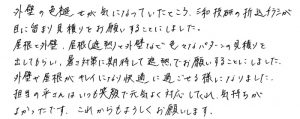 外壁の色褪せが気になっていたところ、三和技研の折込チラシが
目に留まり見積りをお願いすることにしました。
屋根と外壁、屋根(遮熱)と外壁など色々なパターンの見積りを
出してもらい、暑さ対策に期待して遮熱でお願いすることにしました。
外壁や屋根がキレイになり快適に過ごせる様になりました。
担当の平さんはいつも笑顔で元気よく対応してくれ、気持ちが
よかったです。これからもよろしくお願いします。